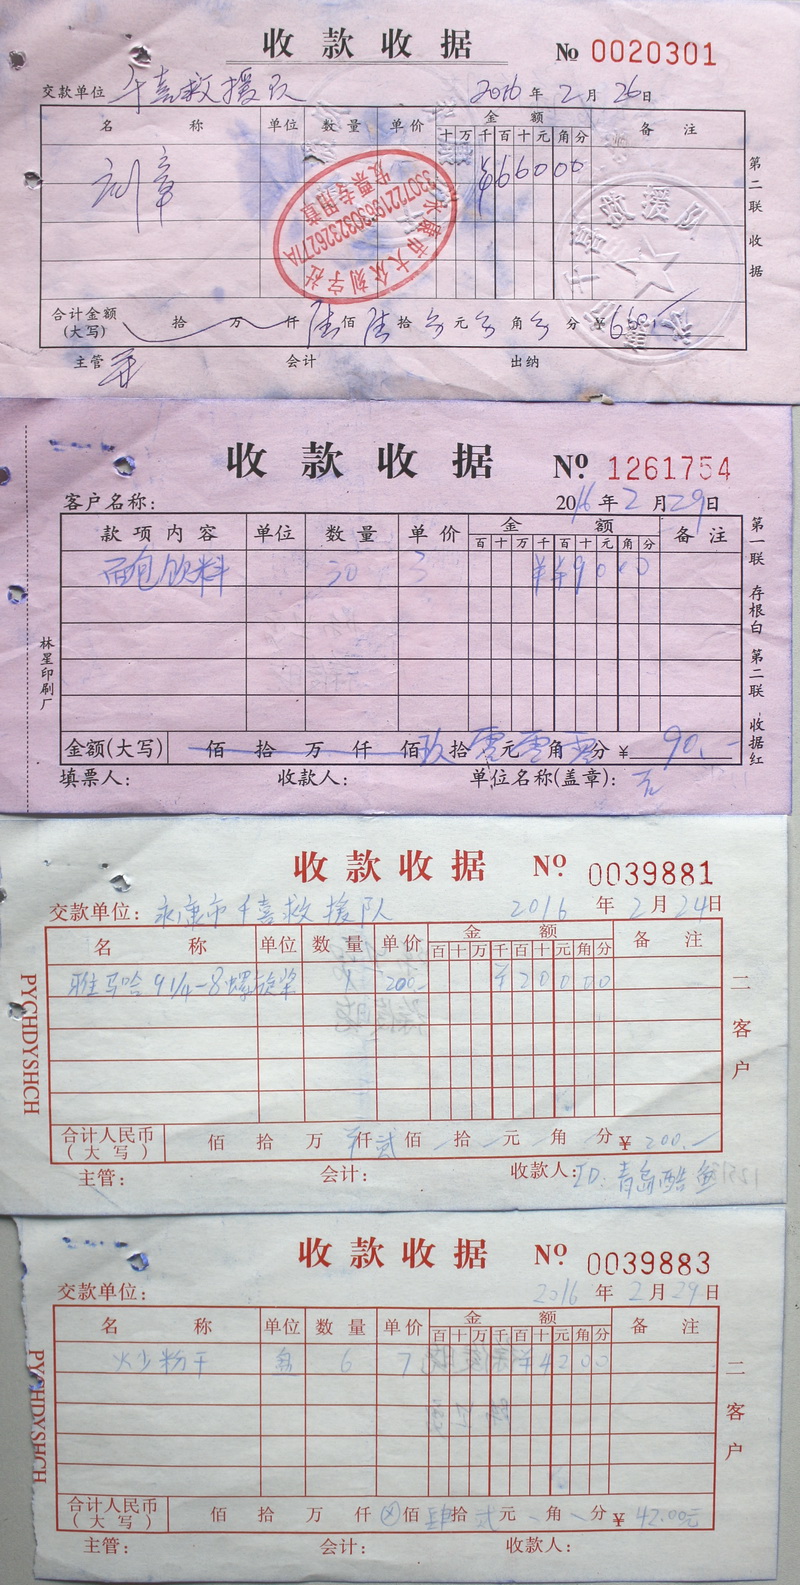 收款收据 № 0020301
交款单位 千喜救援队 2016年2月26日
名称 单位 数量 单价 金额 备注
十万千百十元角分
刻章 ¥66000
永康市大众刻字社
发票专用章
救援队
第二联 收据
合计金额(大写) 拾 万 仟 陆佰陆拾 元 角 分 ¥660.—
主管 会计 出纳
收款收据 № 1261754
客户名称: 2016年2月29日
款项内容 单位 数量 单价 金额 备注
百十万千百十元角分
面包饮料 30 3 ¥9000
第一联 存根白 第二联 收据红
林星印刷厂
金额(大写) 佰拾万仟佰玖拾零元零角零分 ¥90.—
填票人: 收款人: 单位名称(盖章):
收款收据 № 0039881
交款单位: 永康市千喜救援队 2016年2月24日
名称 单位 数量 单价 金额 备注
百十万千百十元角分
雅马哈9 1/4-8螺旋桨 1 200.— ¥20000
二客户
PYCHDYSHCH
合计人民币(大写) 佰拾万仟贰佰 拾 元 角 分 ¥200.—
主管: 会计: 收款人: ID:青岛酷鱼
收款收据 № 0039883
交款单位: 2016年2月29日
名称 单位 数量 单价 金额 备注
百十万千百十元角分
炒粉干 盘 6 7 ¥4200
二客户
PYCHDYSHCH
合计人民币(大写) 佰拾万仟⊗佰肆拾贰元 角 分 ¥42.00元
主管: 会计: 收款人: